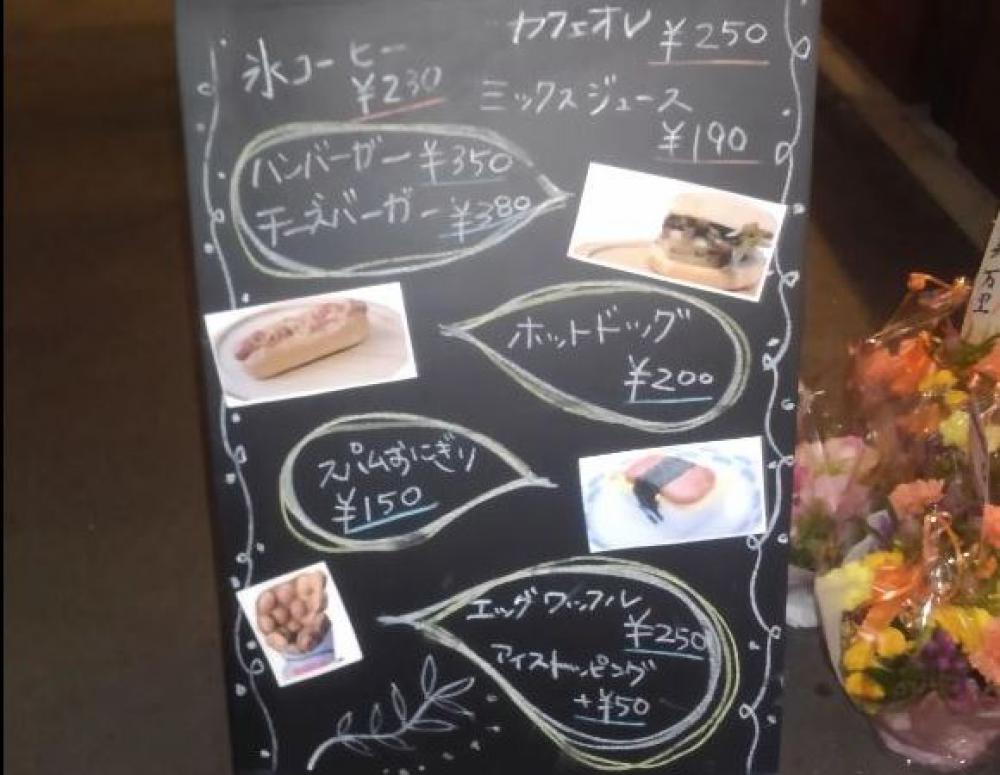 カフェオレ ¥250
氷コーヒー
¥230
ミックスジュース
¥190
ハンバーガー ¥350
チーズバーガー ¥380
ホットドッグ
¥200
スパムおにぎり
¥150
エッグワッフル
¥250
アイストッピング
+¥50